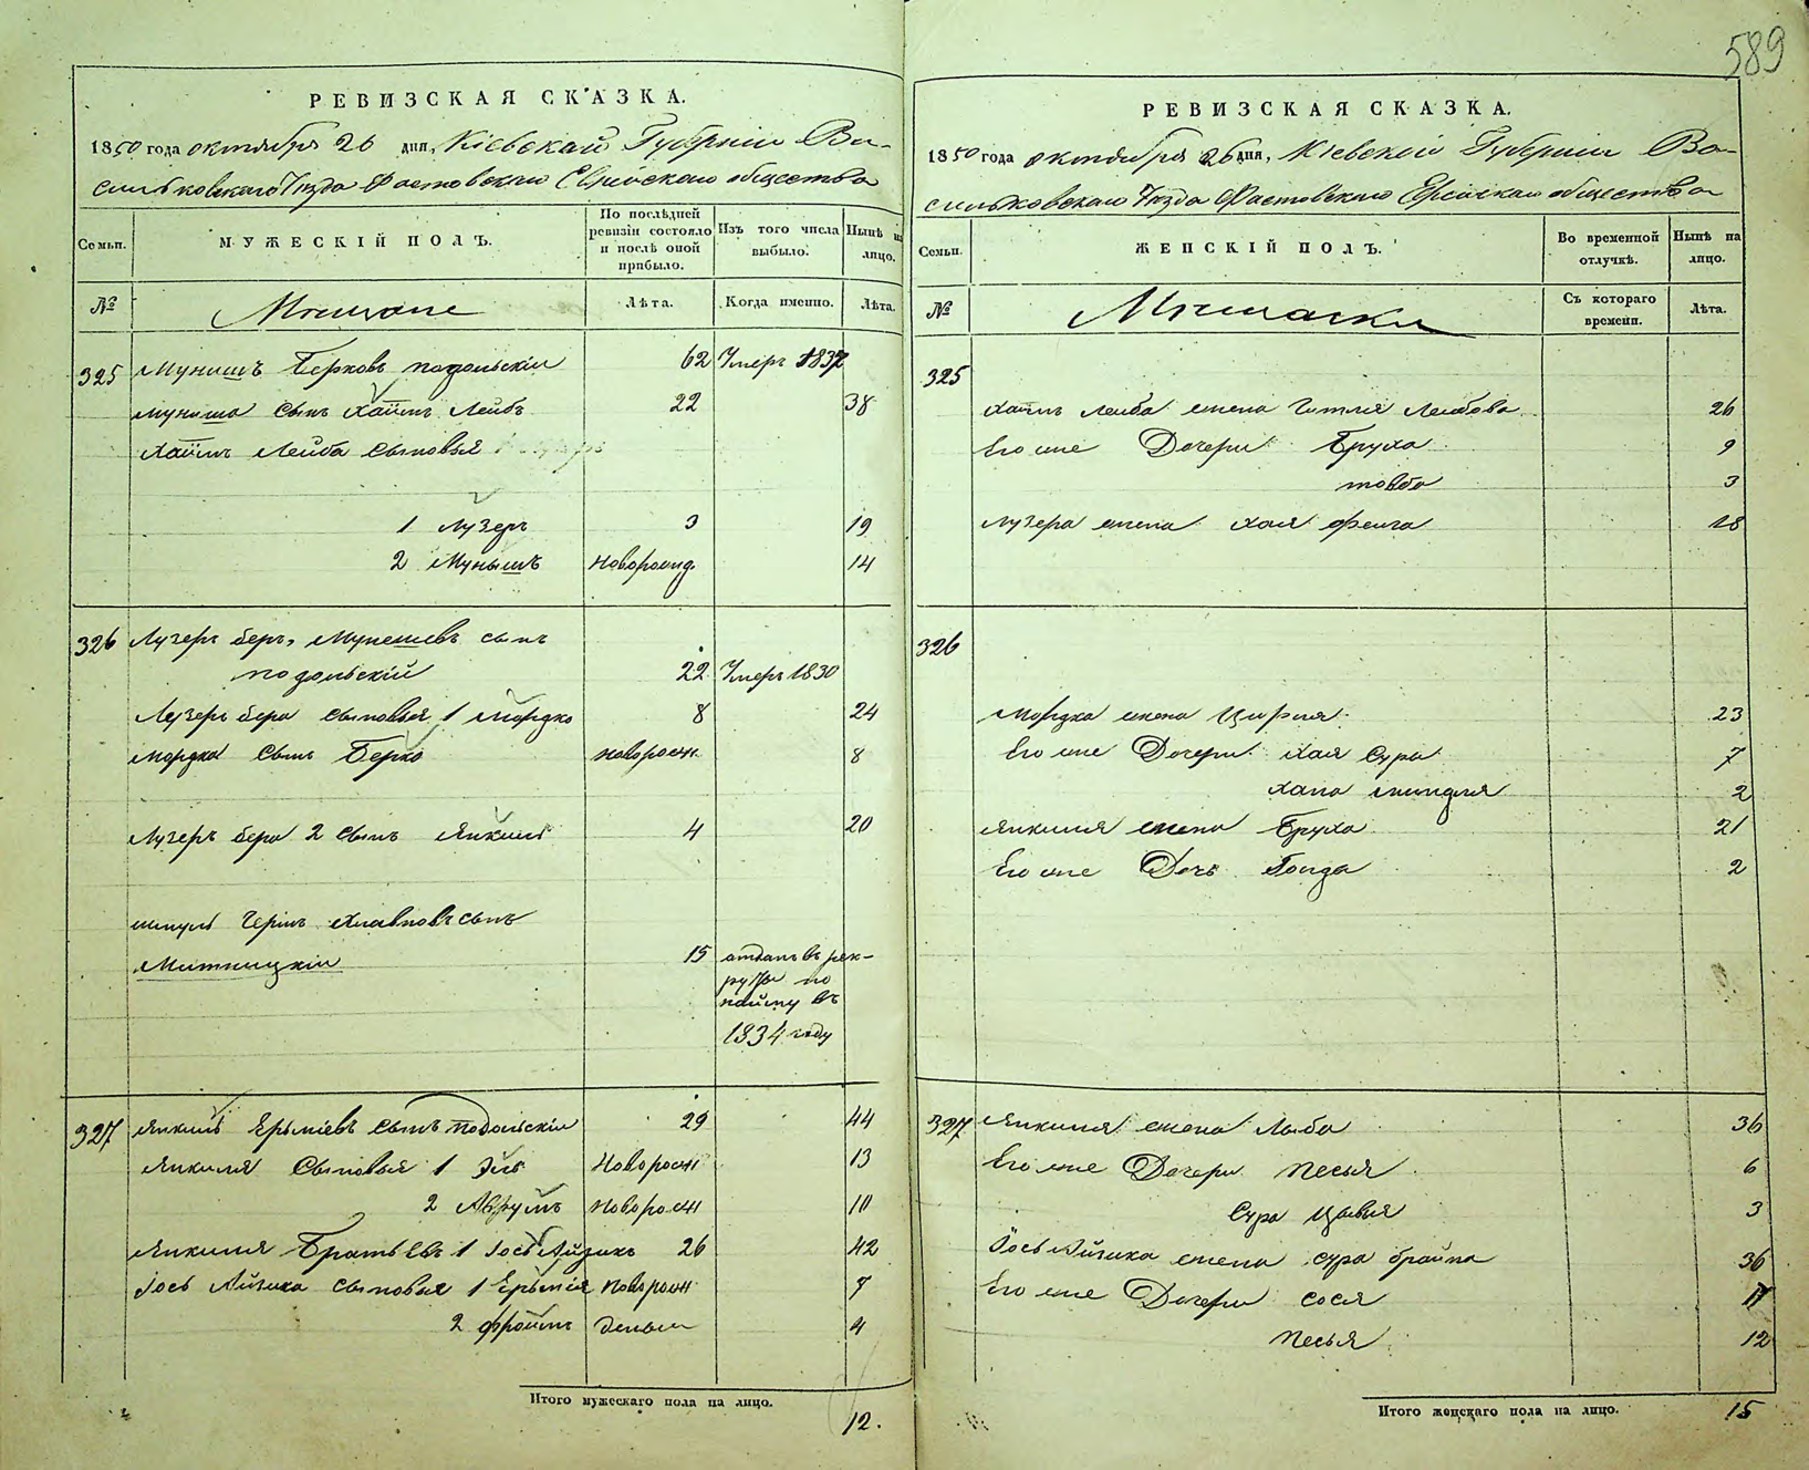 589
РЕВИЗСКАЯ СКАЗКА.
1850 года октября 26 дня, Кіевской Губерніи Ва-
сильковскаго Уѣзда Фастовскаго Еврейскаго общества
Семьи. МУЖЕСКІЙ ПОЛЪ. По послѣдней ревизіи состояло и послѣ оной прибыло. Изъ того числа выбыло. Нынѣ на лицо.
№ Мѣщане Лѣта. Когда именно. Лѣта.
325 Мунишъ Берковъ подольскіи 62 Умеръ 1837
Муниша сынъ Хаимъ Лейбъ 22 38
Хаимъ Лейба сыновья
1 Лузеръ 3 19
2 Мунышъ новорожд. 14
326 Лузеръ беръ, Мунешевъ сынъ
подольскій 22 Умеръ 1830
Лузеръ бера сыновья 1 Мордко 8 24
Мордка сынъ Берко новорож 8
Лузеръ бера 2 сынъ Янкель 4 20
сынъ
Митницкіи 15 отданъ въ рек-
руты по
найму въ
1834 году
327 Янкель Ерьміевъ сынъ подольскіи 29 44
Янкеля сыновья 1 Эль новорож 13
2 Аврумъ новорож 10
Янкеля Братьевъ 1 Іось Айзикъ 26 42
Іось Айзика сыновья 1 Ерьмія новорож 7
2 фроимъ 4
Итого мужескаго пола на лицо.
12.
РЕВИЗСКАЯ СКАЗКА.
1850 года октября 26 дня, Кіевской Губерніи Ва-
сильковскаго Уѣзда Фастовскаго Еврейскаго общества
Семьи. ЖЕНСКІЙ ПОЛЪ. Во временной отлучкѣ. Нынѣ на лицо.
№ Мѣщанки Съ котораго времени. Лѣта.
325
Хаимъ Лейба жена Гитля Лейбова 26
Его же Дочери Бруха 9
товба 3
Лузера жена Хая фейга 18
326
Мордка жена Цирля 23
Его же Дочери Хая Сура 7
Хана миндля 2
Янкеля жена Бруха 21
Его же Дочь 2
327 Янкеля жена Лыба 36
Его же Дочери Песья 6
Сура Цывья 3
Іось Айзика жена сура брайна 36
Его же Дочери Сося 17
Песья 12
Итого женскаго пола на лицо.
15